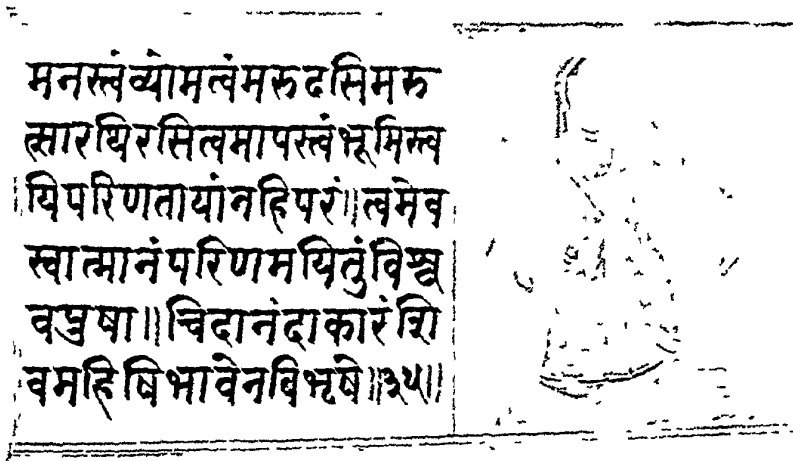 मनस्त्वंव्योमत्वंमरुदसिमरु
त्सारथिरसित्वमापस्त्वंभूमिस्त्व
यिपरिणतायांनहिपरं॥त्वमेव
स्वात्मानंपरिणमयितुंविश्व
वपुषा॥चिदानंदाकारंशि
वमहिषिभावेनबिभृषे॥३५॥